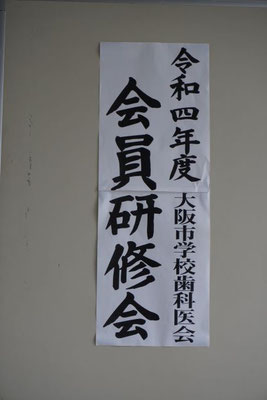 令和四年度 大阪市学校歯科医会
会員研修会